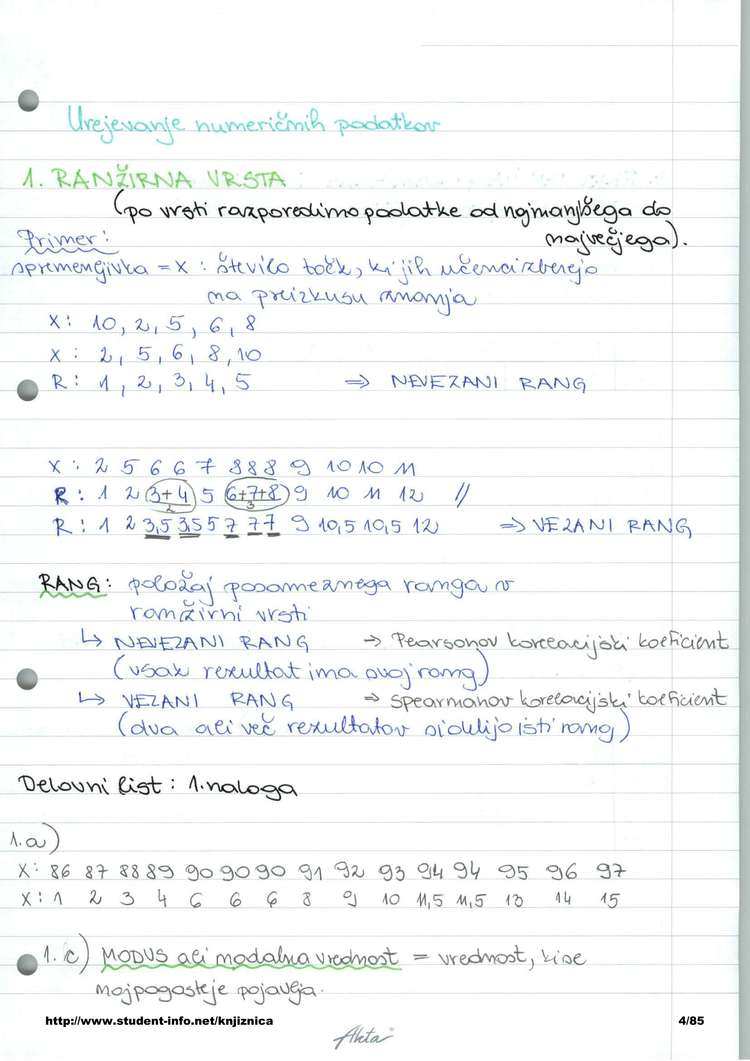 Urejevanje numeričnih podatkov
1. RANŽIRNA VRSTA
(po vrsti razporedimo podatke od najmanjšega do
največjega).
Primer:
spremenljivka = X : število točk, ki jih učenci zberejo
na preizkusu znanja
X: 10, 2, 5, 6, 8
X: 2, 5, 6, 8, 10
R: 1, 2, 3, 4, 5 ⇒ NEVEZANI RANG
X: 2 5 6 6 7 8 8 8 9 10 10 11
R: 1 2 (3+4) 5 (6+7+8) 9 10 11 12 //
2 3
R: 1 2 3,5 3,5 5 7 7 7 9 10,5 10,5 12 ⇒ VEZANI RANG
RANG: položaj posameznega ranga v
ranžirni vrsti
↳ NEVEZANI RANG → Pearsonov korelacijski koeficient
(vsak rezultat ima svoj rang)
↳ VEZANI RANG ⇒ Spearmanov korelacijski koeficient
(dva ali več rezultatov si delijo isti rang)
Delovni list: 1. naloga
1.a)
X: 86 87 88 89 90 90 90 91 92 93 94 94 95 96 97
X: 1 2 3 4 6 6 6 8 9 10 11,5 11,5 13 14 15
1. c) MODUS ali modalna vrednost = vrednost, ki se
najpogosteje pojavlja.
http://www.student-info.net/knjiznica 4/85
Ahta